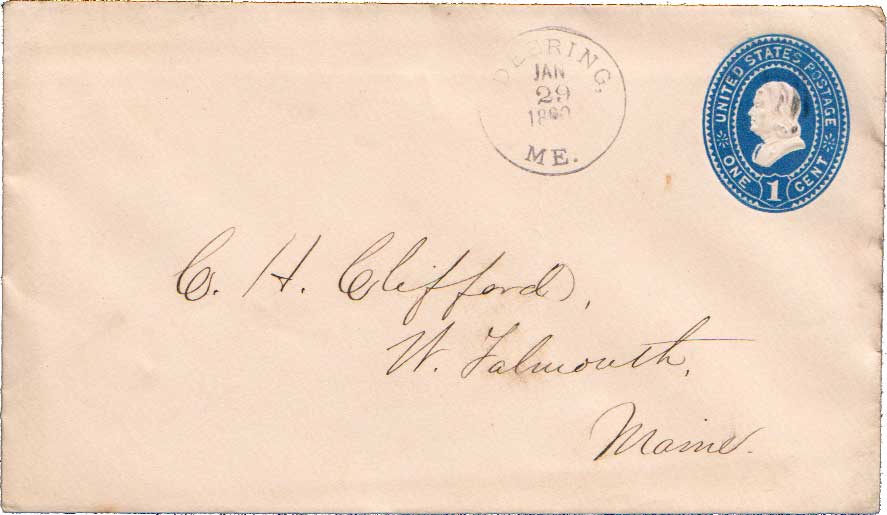 DEERING,
JAN
29
1890
ME.
UNITED STATES POSTAGE
ONE 1 CENT
C. H. Clifford,
W. Falmouth,
Maine.